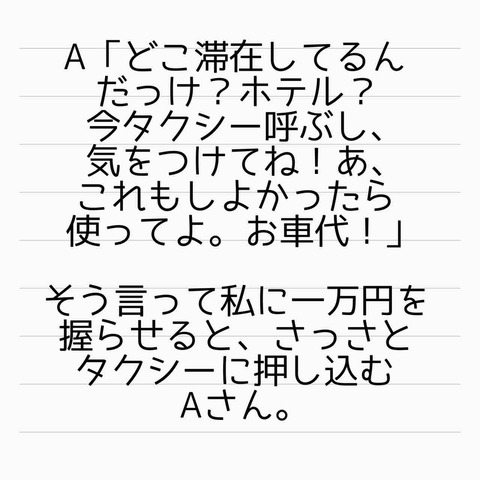 A「どこ滞在してるん
だっけ？ホテル？
今タクシー呼ぶし、
気をつけてね！あ、
これもしよかったら
使ってよ。お車代！」
そう言って私に一万円を
握らせると、さっさと
タクシーに押し込む
Aさん。